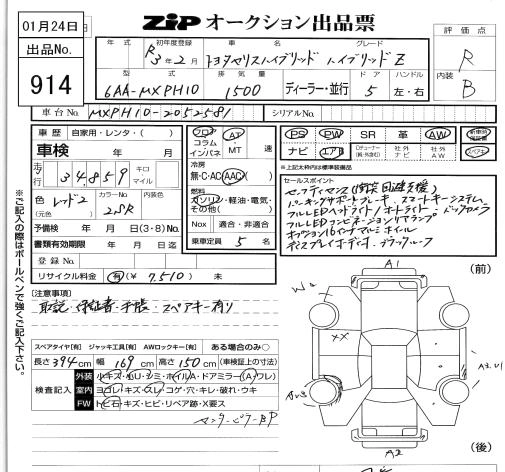 01月24日
出品No.
914
ZIP オークション出品票
評価点
R
内装
B
年式 初年度登録 車名 グレード
R3年2月 トヨタヤリスハイブリッド ハイブリッドZ
型式 排気量 ドア ハンドル
6AA-MXPH10 1500 ディーラー・並行 5 左・右
車台No. MXPH10-2052581 シリアルNo.
車歴 自家用・レンタ・( )
車検 年 月
走行 34,859 キロ マイル
色 レッド2 カラーNo. 2SR 内装色
(元色 )
予備検 年 月 日(3・8)No.
書類有効期限 年 月 日迄
登録No.
リサイクル料金 有(¥ 7,510 ) 未
フロア コラム インパネ AT ・ MT 速
冷房 無・C・AC・AAC( )
燃料 ガソリン・軽油・電気・その他( )
Nox 適合・非適合
乗車定員 5 名
PS PW SR 革 AW 新車時保証書
ナビ エアB 社外ナビ 社外AW
※上記太枠内は標準装備品
セールスポイント
セーフティセンス(衝突回避支援)
パーキングサポートブレーキ スマートキーシステム
フルLEDヘッドライト/オートライト バックカメラ
フルLEDコンビネーションリヤランプ
オプション16インチアルミホイル
ディスプレイオーディオ ブラックルーフ
※ご記入の際はボールペンで強くご記入下さい。
[注意事項]
取説・保証書・手帳 スペアキー有り
スペアタイヤ[有] ジャッキ工具[有] AWロックキー[有] ある場合のみ〇
長さ 394cm 幅 169cm 高さ 150cm (車検証上の寸法)
検査記入
外装 小キズ・小U・シミ・ホイルA・ドアミラー(A・ワレ)
室内 ヨゴレ・キズ・スレ・コゲ・穴・キレ・破れ・ウキ
FW トビ石・キズ・ヒビ・リペア跡・X要ス
センターピラーBP
A1
(前)
XX
A3.U1
A2
(後)